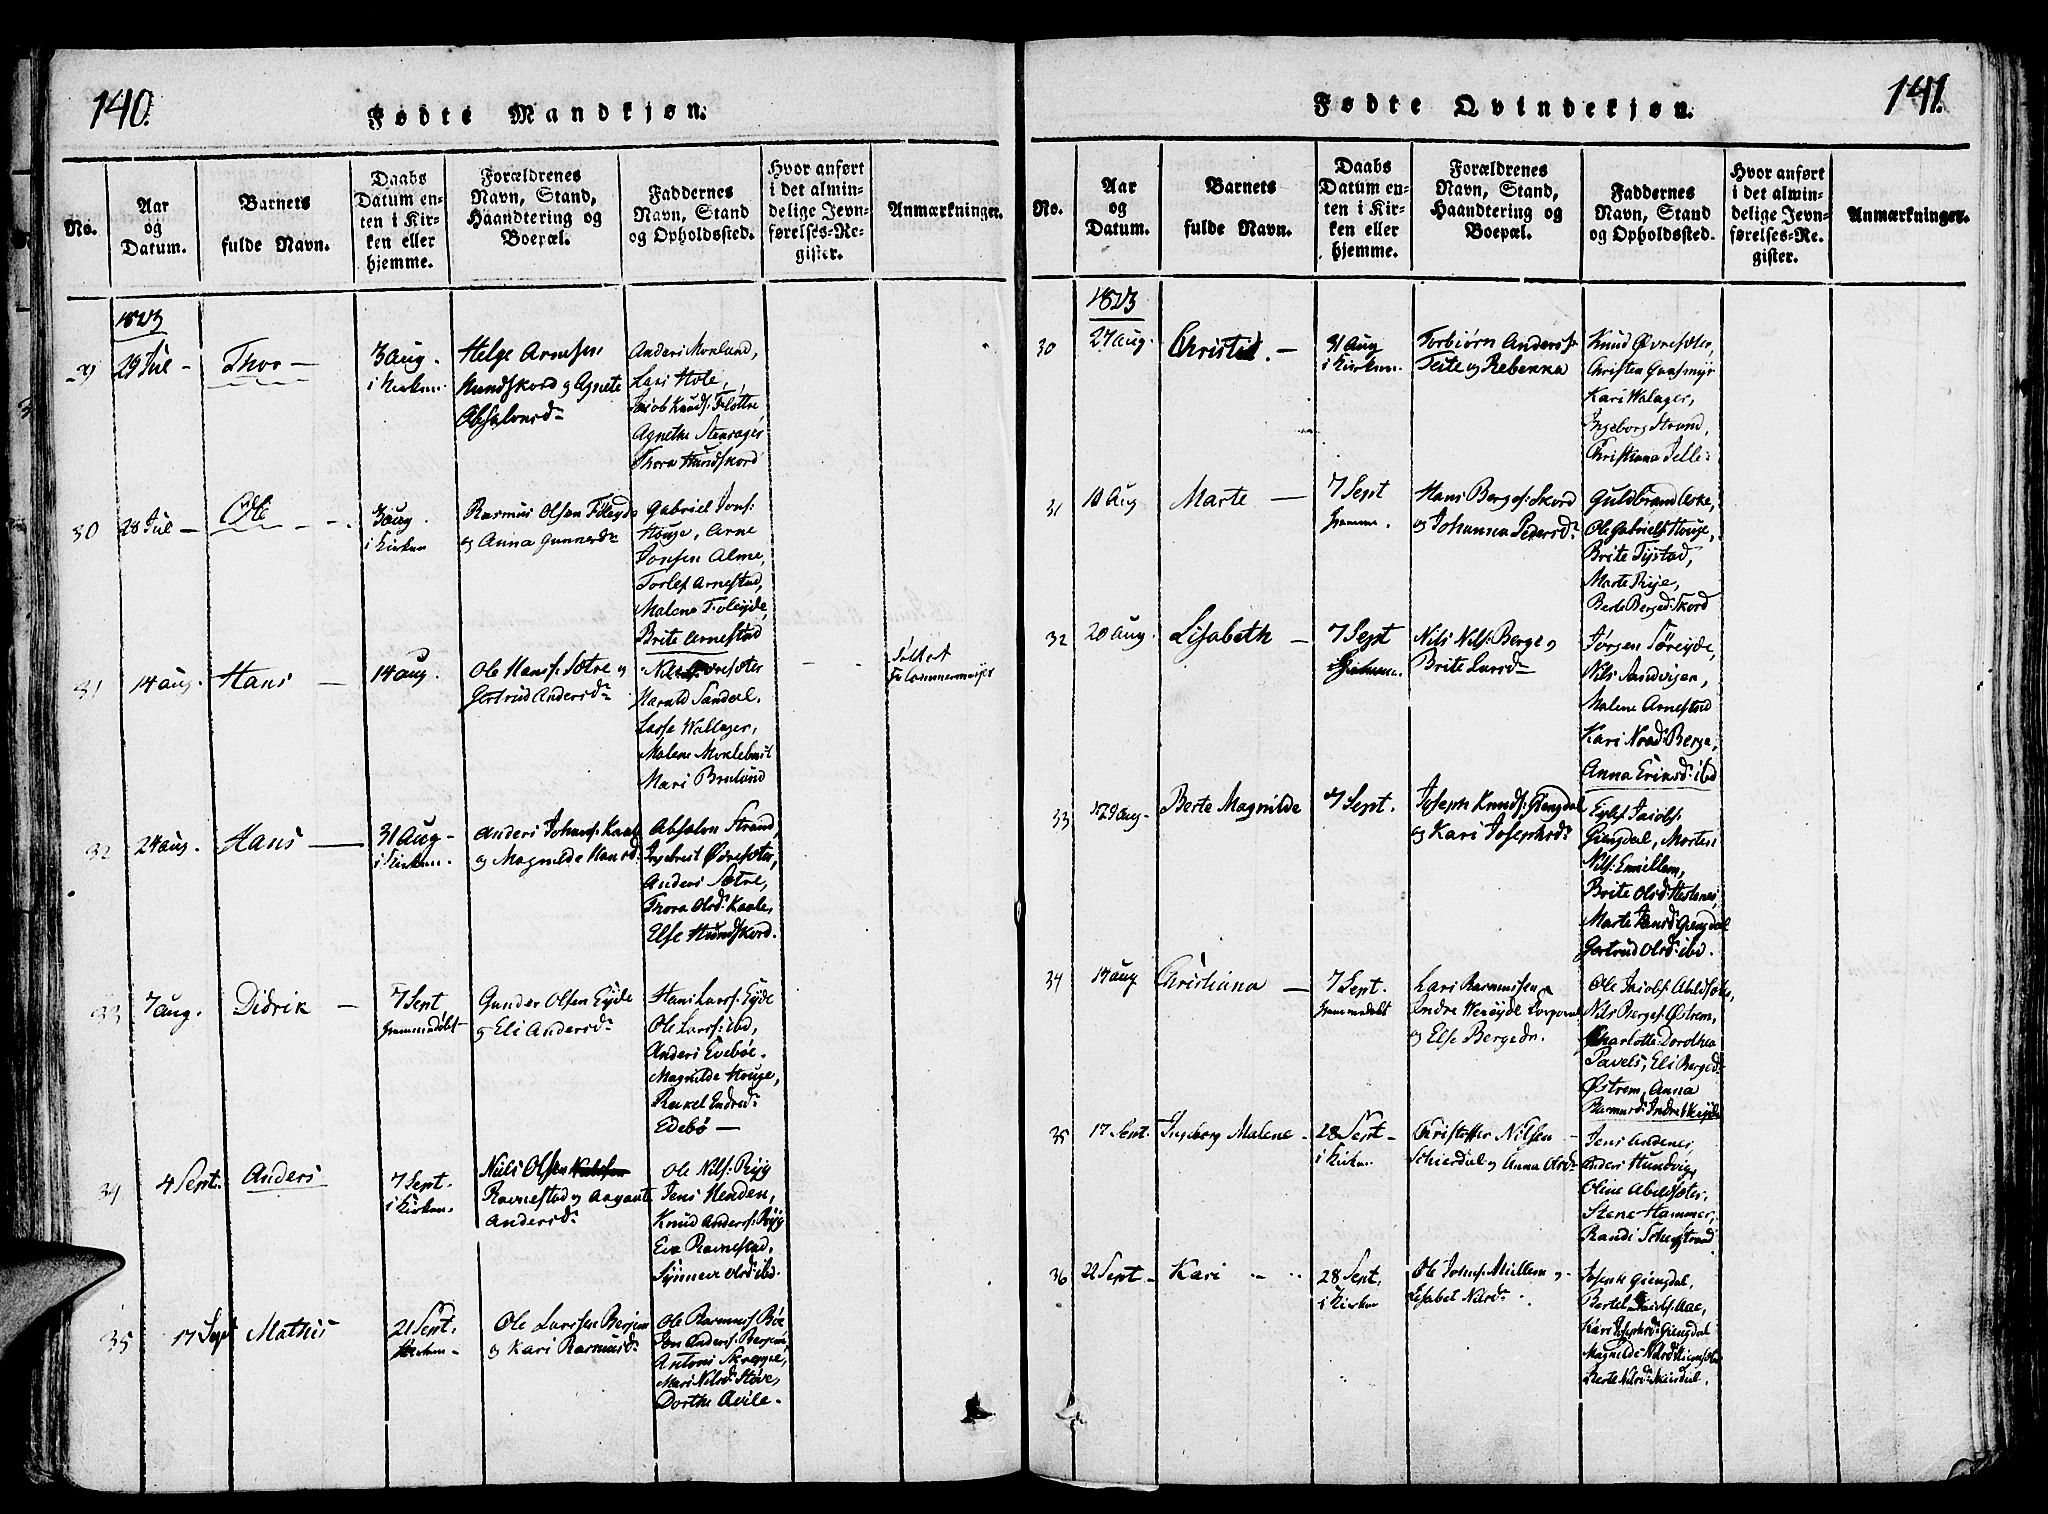 140.
Fødte Mandkjøn.
No.
Aar
og
Datum.
Barnets
fulde Navn.
Daabs
Datum en-
ten i Kir-
ken eller
hjemme.
Forældrenes
Navn, Stand,
Haandtering og
Boepæl.
Faddernes
Navn, Stand
og Opholdssted.
Hvor anført
i det almin-
delige Jevn-
førelses-Re-
gister.
Anmærkninger.
1823
29
29 Jul -
Thor -
3 Aug.
i Kirken.
Helge Arnesen
Hundskord og Agnete
Absalonsd.
Anders
Lars Hole,
Jacob Knuds: Fløttre,
Agnethe
Thora Hundskord
30
28 Jul -
Ole
3 aug.
i Kirken
Rasmus Olsen
og Anna Gunnersd.
Gabriel Jons:
Houge, Arne
Jonsen Alme,
Torlef Arnestad,
Malene
Brite Arnestad
31
14 aug.
Hans -
14 aug.
Ole Hans: Sætre og
Gertrud Andersd.
Nils Øvresæter
Harald Sandal,
Lasse Wallager,
Malene
Mari
32
24 aug.
Hans -
31 Aug -
i Kirken.
Anders Johans: Kaale
og Magnilde Hansd.
Absalon Strand,
Øvresæter,
Anders Sætre,
Thora Olsd: Kaale,
Else Hundskord.
33
7 aug.
Didrik -
7 Sept
Gunder Olsen Eyde
og Eli Andersd.
Hans Larss: Eyde
Ole Larss: ibd,
Anders Evebøe.
Magnilde Houge,
Rakel Endresd.
Edebø -
34
4 Sept.
Anders
7 Sept.
i Kirken.
Niels Olsen
Ravnestad og
Andersd.
Ole Nils: Ryg
Jens Henden,
Knud Anders: Ryg
Eva Ravnestad,
Synneve Olsd: ibd.
35
17 Sept
Mathis
21 Sept.
Kirken -
Ole Larssen
og Kari Rasmusd.
Ole Rasmuss: Bøe
Jon Anders:
Antoni
Mari Nilsd: Støve,
Dorthe Avile.
141.
Fødte Qvindekjøn.
No.
Aar
og
Datum.
Barnets
fulde Navn.
Daabs
Datum en-
ten i Kir-
ken eller
hjemme.
Forældrenes
Navn, Stand,
Haandtering og
Boepæl.
Faddernes
Navn, Stand
og Opholdssted.
Hvor anført
i det almin-
delige Jevn-
førelses-Re-
gister.
Anmærkninger.
1823
30
27 aug.
31 Aug
i Kirken.
Torbiørn Anders:
Teite og Rebekka
Knud Øvresæter,
Christen
Kari Walager,
Ingeborg Strand,
Christiana
31
10 Aug
Marte -
7 Sept
Hans Berges: Skord
og Johanna Pedersd.
Guldbrand Aske,
Ole Gabriels: Houge,
Brite Tystad,
Marte Rye,
Berte Bergesd: Skord
32
20 Aug.
Lisabeth -
7 Sept
Nils Nils: Berge og
Brite Larsd.
Jørgen
Nils Sandvigen,
Malene Arnestad
Kari Berge,
Anna Eriksd: ibd
33
29 aug -
Berte Magnilde
7 Sept.
Joseph Knuds: Giengdal
og Kari Josephsd.
Jacobs:
Giengdal, Morten
Nils:
Brite Olsd:
Marte Giengdal
Gertrud Olsd: ibd.
34
17 aug
Christiana -
7 Sept.
Lars Rasmussen
Indre Corporal
og Else Bergedr.
Ole Jacobs: Abelsæter,
Nils Berges: Østrem,
Charlotte Dorothea
Pavels, Eli Bergesd.
Østrem, Anna
Rasmusd: Indre
35
17 Sept.
Ingeborg Malene -
28 Sept -
i Kirken
Christoffer Nilsen -
og Anna Olsd.
Jens Andenes
Anders Hundvig,
Oline Abelsæter,
Stene Hammer,
Randi
36
21 Sept -
Kari
28 Sept.
i Kirken
Ole Johs: Midlem og
Lisabet Nilsd.
Joseph Giengdal,
Bertel Jacobs: Aae,
Kari Josephsd: Giengdal
Magnilde Nilsd:
Berte Nilsd: